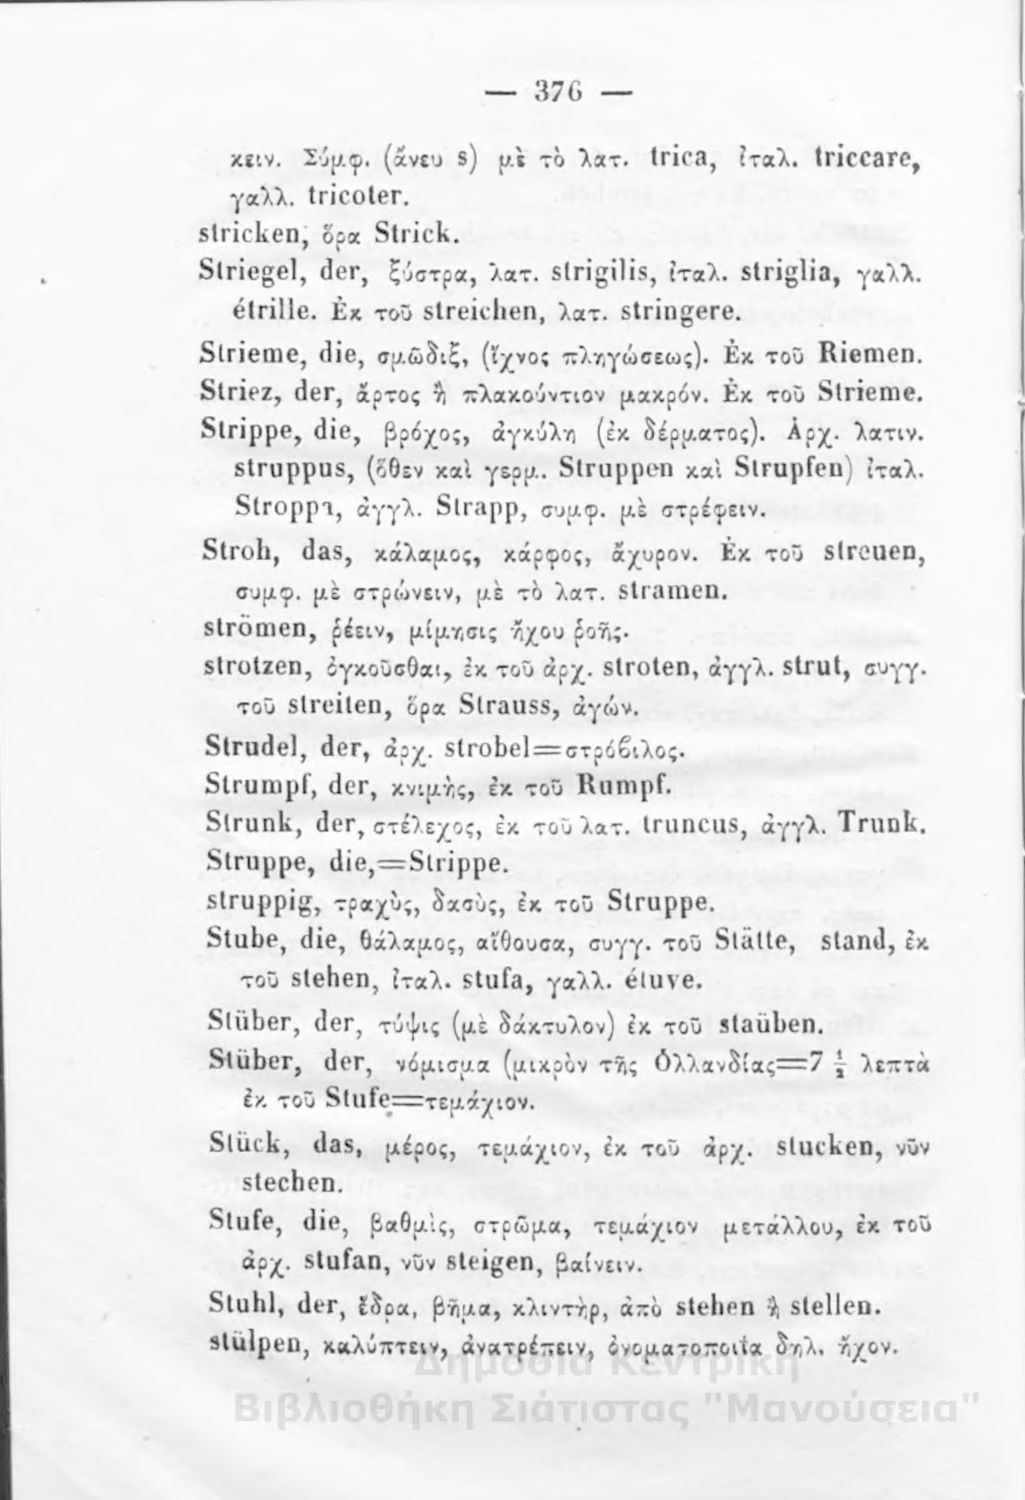 — 376 —
κειν. Σύμφ. (ἄνευ s) μὲ τὸ λατ. trica, ἰταλ. triccare,
γαλλ. tricoter.
stricken, ὅρα Strick.
Striegel, der, ξύστρα, λατ. strigilis, ἰταλ. striglia, γαλλ.
étrille. Ἐκ τοῦ streichen, λατ. stringere.
Strieme, die, σμῶδιξ, (ἴχνος πληγώσεως). Ἐκ τοῦ Riemen.
Striez, der, ἄρτος ἢ πλακούντιον μακρόν. Ἐκ τοῦ Strieme.
Strippe, die, βρόχος, ἀγκύλη (ἐκ δέρματος). Ἀρχ. λατιν.
struppus, (ὅθεν καὶ γερμ. Struppen καὶ Strupfen) ἰταλ.
Stroppa, ἀγγλ. Strapp, συμφ. μὲ στρέφειν.
Stroh, das, κάλαμος, κάρφος, ἄχυρον. Ἐκ τοῦ streuen,
συμφ. μὲ στρώνειν, μὲ τὸ λατ. stramen.
strömen, ῥέειν, μίμησις ἤχου ῥοῆς.
strotzen, ὀγκοῦσθαι, ἐκ τοῦ ἀρχ. stroten, ἀγγλ. strut, συγγ.
τοῦ streiten, ὅρα Strauss, ἀγών.
Strudel, der, ἀρχ. strobel=στρόβιλος.
Strumpf, der, κνιμὴς, ἐκ τοῦ Rumpf.
Strunk, der, στέλεχος, ἐκ τοῦ λατ. truncus, ἀγγλ. Trunk.
Struppe, die,=Strippe.
struppig, τραχὺς, δασὺς, ἐκ τοῦ Struppe.
Stube, die, θάλαμος, αἴθουσα, συγγ. τοῦ Stätte, stand, ἐκ
τοῦ stehen, ἰταλ. stufa, γαλλ. étuve.
Stüber, der, τύψις (μὲ δάκτυλον) ἐκ τοῦ staüben.
Stüber, der, νόμισμα (μικρὸν τῆς Ὁλλανδίας=7 ½ λεπτὰ
ἐκ τοῦ Stufe=τεμάχιον.
Stück, das, μέρος, τεμάχιον, ἐκ τοῦ ἀρχ. stucken, νῦν
stechen.
Stufe, die, βαθμὶς, στρῶμα, τεμάχιον μετάλλου, ἐκ τοῦ
ἀρχ. stufan, νῦν steigen, βαίνειν.
Stuhl, der, ἕδρα, βῆμα, κλιντὴρ, ἀπὸ stehen ἢ stellen.
stülpen, καλύπτειν, ἀνατρέπειν, ὀνοματοποιΐα δηλ. ἤχον.
Δημόσια Κεντρική
Βιβλιοθήκη Σιάτιστας "Μανούσεια"